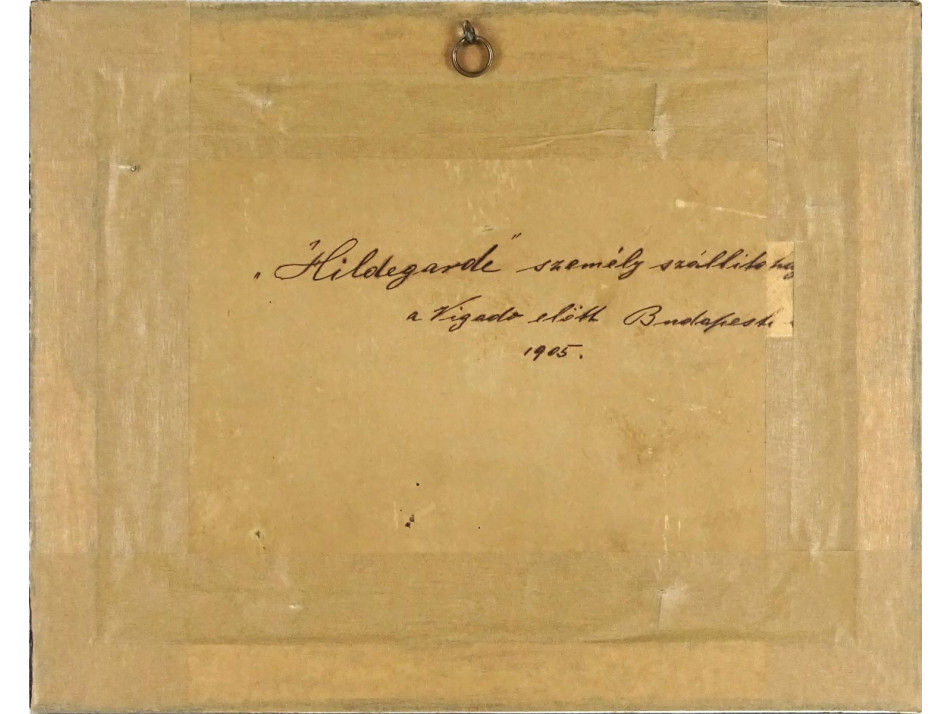 „Hildegarde" személy szállito haj
a Vigado előtt Budapest
1905.